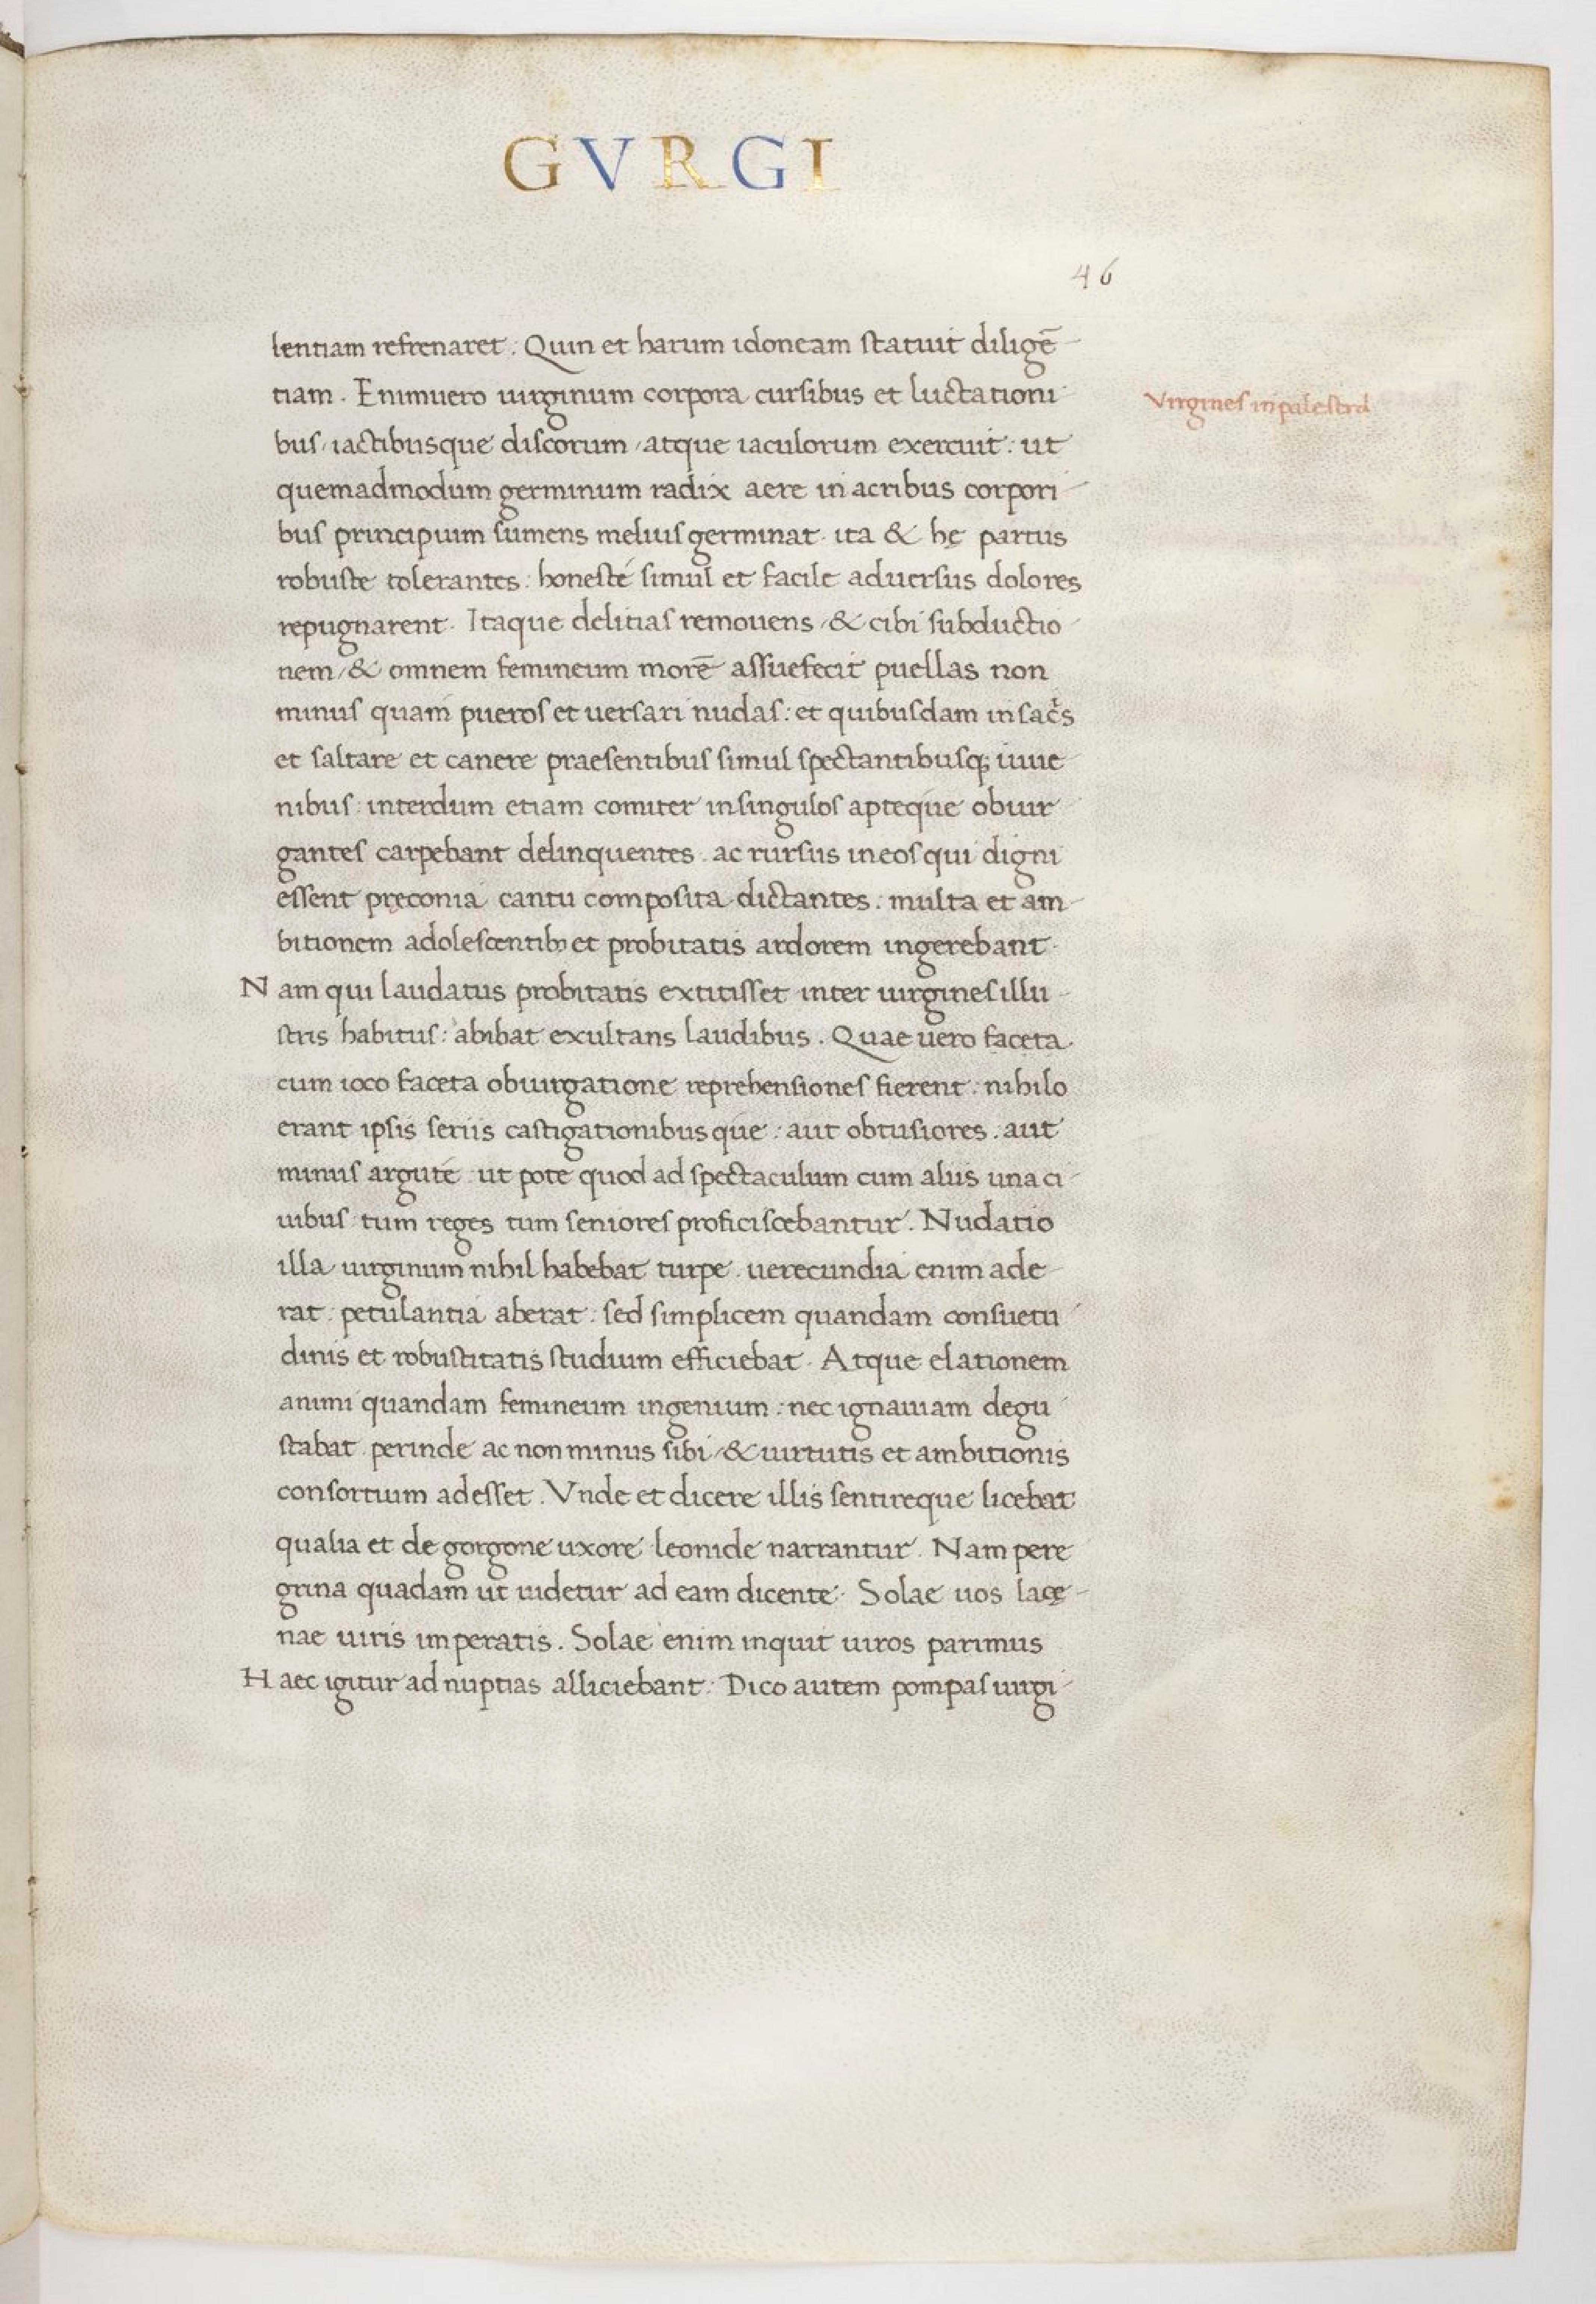 GVRGI
46
lentiam refrenaret: Quin et harum idoneam statuit diligē-
tiam. Enimuero uirginum corpora cursibus et luctationi-
Virgines in palestra
bus, iactibusque discorum, atque iaculorum exercuit: ut
quemadmodum germinum radix aere in acribus corpori-
bus principium sumens melius germinat· ita & hę partus
robuste tolerantes: honeste simul et facile aduersus dolores
repugnarent. Itaque delitias remouens, & cibi subductio-
nem, & omnem femineum morē assuefecit puellas non
minus quam pueros et uersari nudas: et quibusdam in sacr̄s
et saltare et canere praesentibus simul spectantibusq; iuue-
nibus: interdum etiam comiter in singulos apteque obiur-
gantes carpebant delinquentes. ac rursus in eos qui digni
essent pręconia cantu composita dictantes: multa et am-
bitionem adolescentib; et probitatis ardorem ingerebant.
Nam qui laudatus probitatis extitisset inter uirgines illu-
stris habitus: abibat exultans laudibus. Quae uero faceta
cum ioco faceta obiurgatione reprehensiones fierent: nihilo
erant ipsis seriis castigationibusque: aut obtusiores: aut
minus argute· ut pote quod ad spectaculum cum aliis una ci-
uibus· tum reges tum seniores proficiscebantur. Nudatio
illa uirginum nihil habebat turpe· uerecundia enim ade-
rat: petulantia aberat: sed simplicem quandam consuetu-
dinis et robustitatis studium efficiebat. Atque elationem
animi quandam femineum ingenium: nec ignauiam degu-
stabat· perinde ac non minus sibi, & uirtutis et ambitionis
consortium adesset. Vnde et dicere illis sentireque licebat
qualia et de gorgone uxore leonide narrantur. Nam pere
grina quadam ut uidetur ad eam dicente· Solae uos lacę-
nae uiris imperatis. Solae enim inquit uiros parimus
Haec igitur ad nuptias alliciebant: Dico autem pompas uirgi-